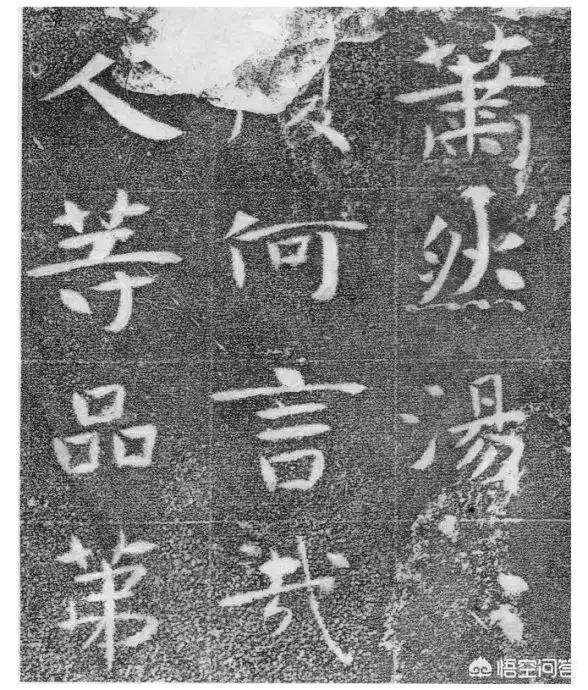 蕭然湯〻
復何言哉
人等品第
悟空问答